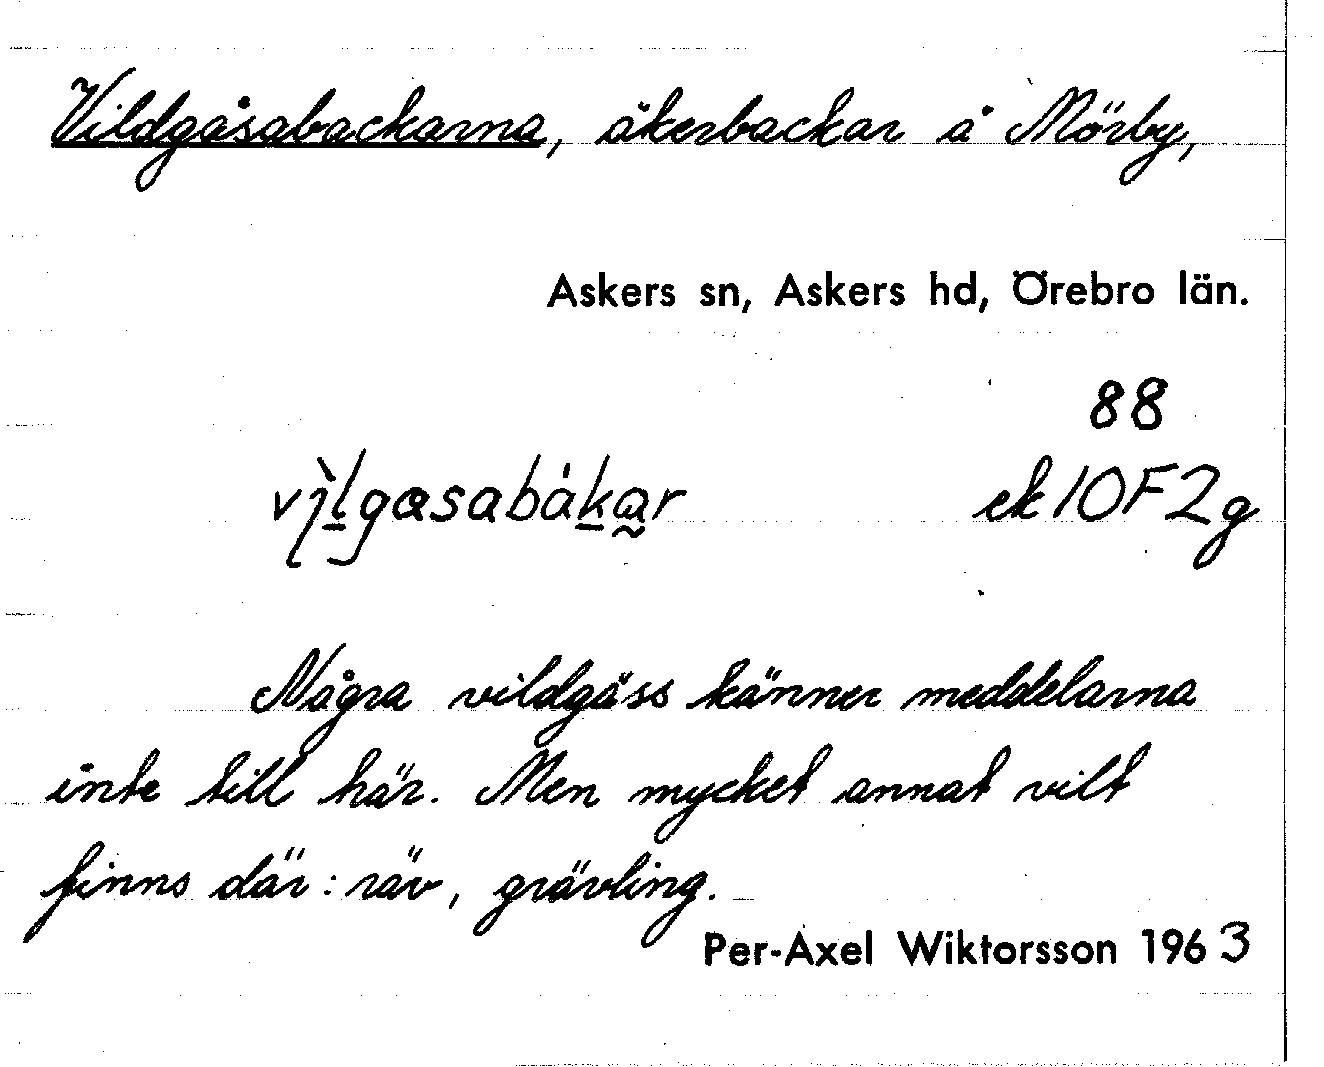 Vildgåsabackarna, åkerbackar å Mörby,
Askers sn, Askers hd, Örebro län.
88
ek 10F2g
Några vildgäss känner meddelarna
inte till här. Men mycket annat vilt
finns där: räv, grävling.
Per-Axel Wiktorsson 1963